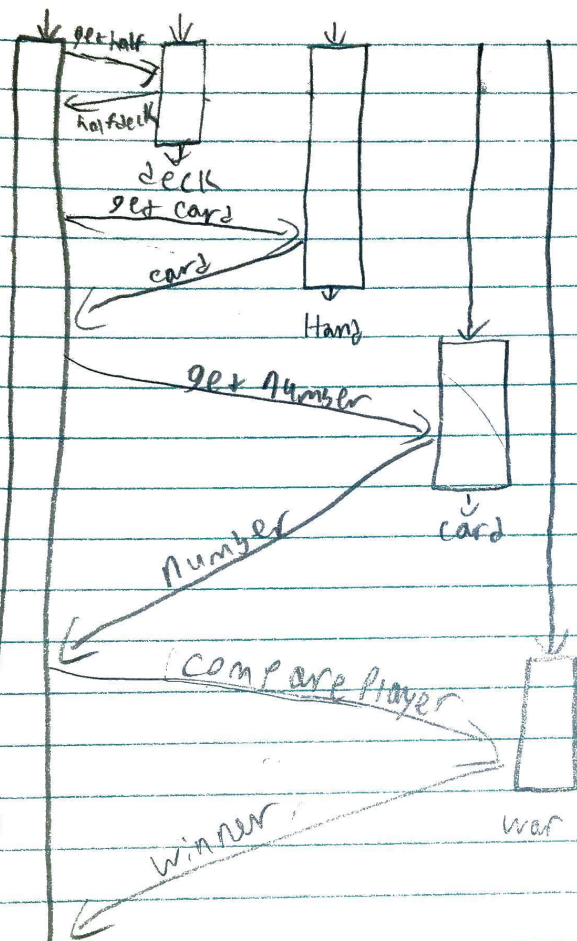 get half
halfdeck
deck
get card
card
Hand
get number
card
number
compare Player
war
winner